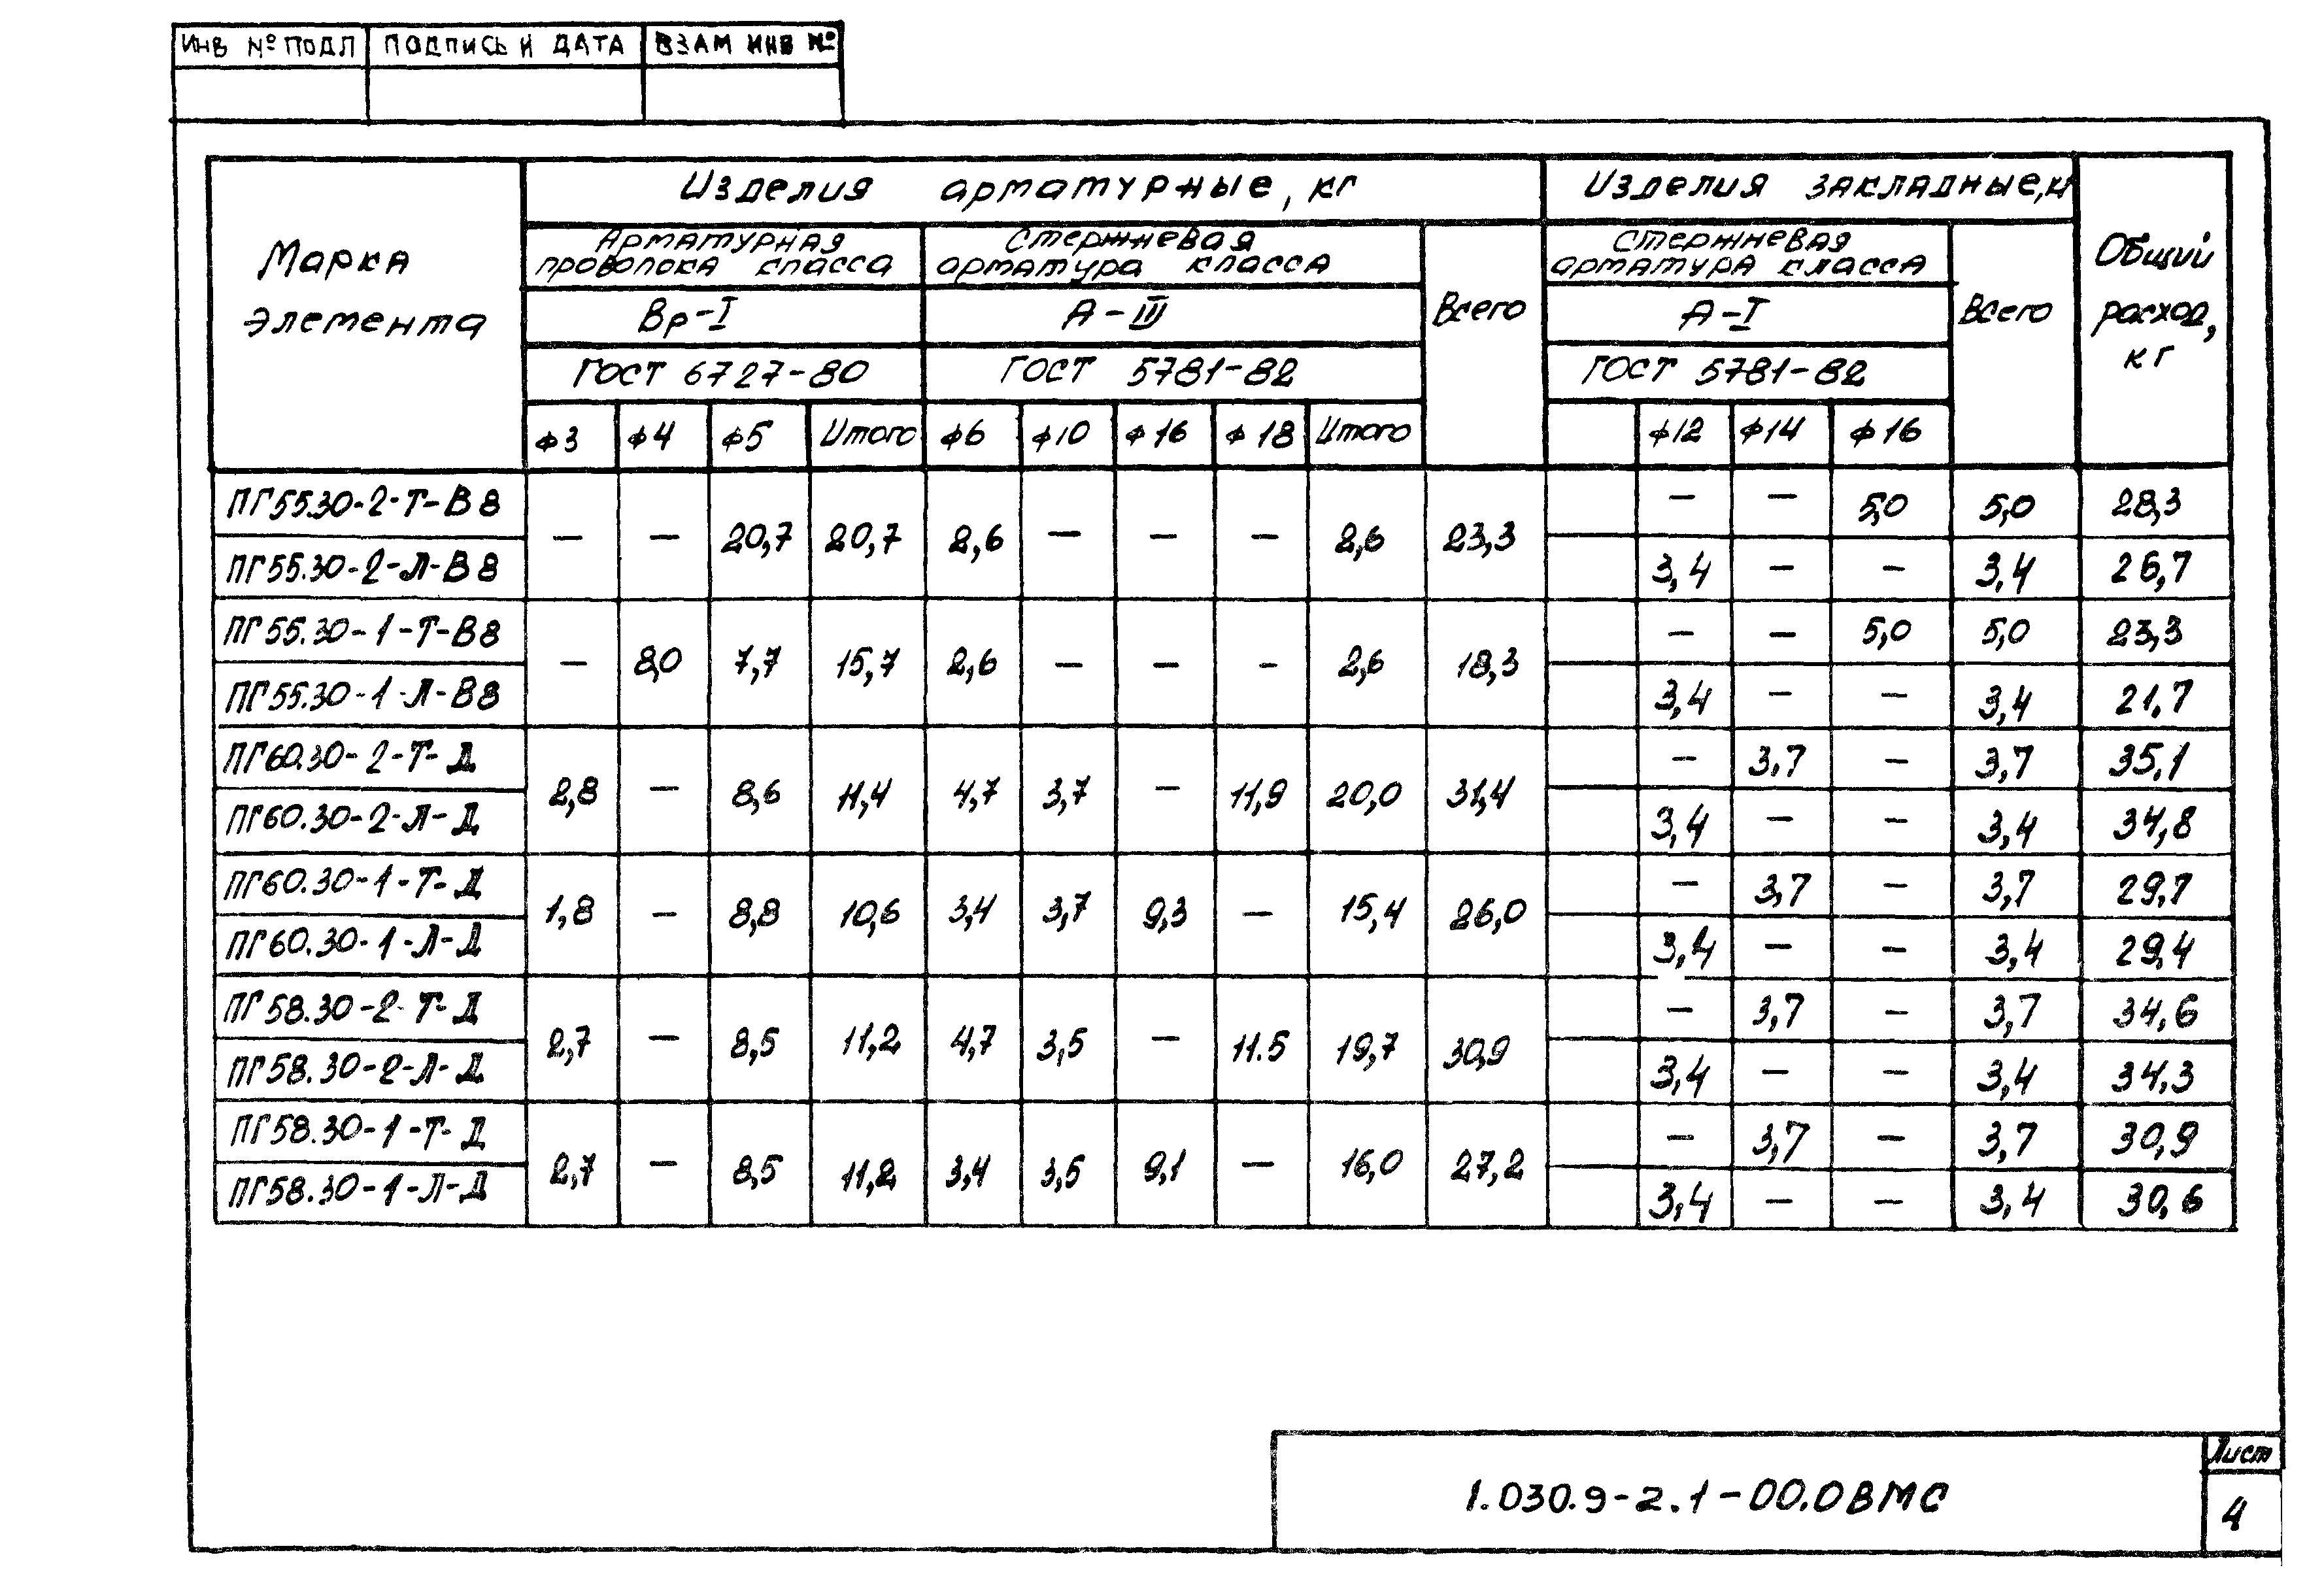 ИНВ № ПОДЛ ПОДПИСЬ И ДАТА ВЗАМ ИНВ №
Марка элемента
Изделия арматурные, кг
Изделия закладные, кг
Общий расход, кг
Арматурная проволока класса
Стержневая арматура класса
Всего
Стержневая арматура класса
Всего
Вр-I А-III А-I
ГОСТ 6727-80 ГОСТ 5781-82 ГОСТ 5781-82
ф3 ф4 ф5 Итого ф6 ф10 ф16 ф18 Итого ф12 ф14 ф16
ПГ55.30-2-Т-В8 — — 5,0 5,0 28,3
— — 20,7 20,7 2,6 — — — 2,6 23,3
ПГ55.30-2-Л-В8 3,4 — — 3,4 26,7
ПГ55.30-1-Т-В8 — — 5,0 5,0 23,3
— 8,0 7,7 15,7 2,6 — — - 2,6 18,3
ПГ55.30-1-Л-В8 3,4 — — 3,4 21,7
ПГ60.30-2-Т-Д — 3,7 — 3,7 35,1
2,8 — 8,6 11,4 4,7 3,7 — 11,9 20,0 31,4
ПГ60.30-2-Л-Д 3,4 — — 3,4 34,8
ПГ60.30-1-Т-Д — 3,7 — 3,7 29,7
1,8 — 8,8 10,6 3,4 3,7 9,3 — 15,4 26,0
ПГ60.30-1-Л-Д 3,4 — — 3,4 29,4
ПГ58.30-2-Т-Д — 3,7 — 3,7 34,6
2,7 — 8,5 11,2 4,7 3,5 — 11.5 19,7 30,9
ПГ58.30-2-Л-Д 3,4 — — 3,4 34,3
ПГ58.30-1-Т-Д — 3,7 — 3,7 30,9
2,7 — 8,5 11,2 3,4 3,5 9,1 — 16,0 27,2
ПГ58.30-1-Л-Д 3,4 — — 3,4 30,6
1.030.9-2.1-00.0ВМС
Лист
4